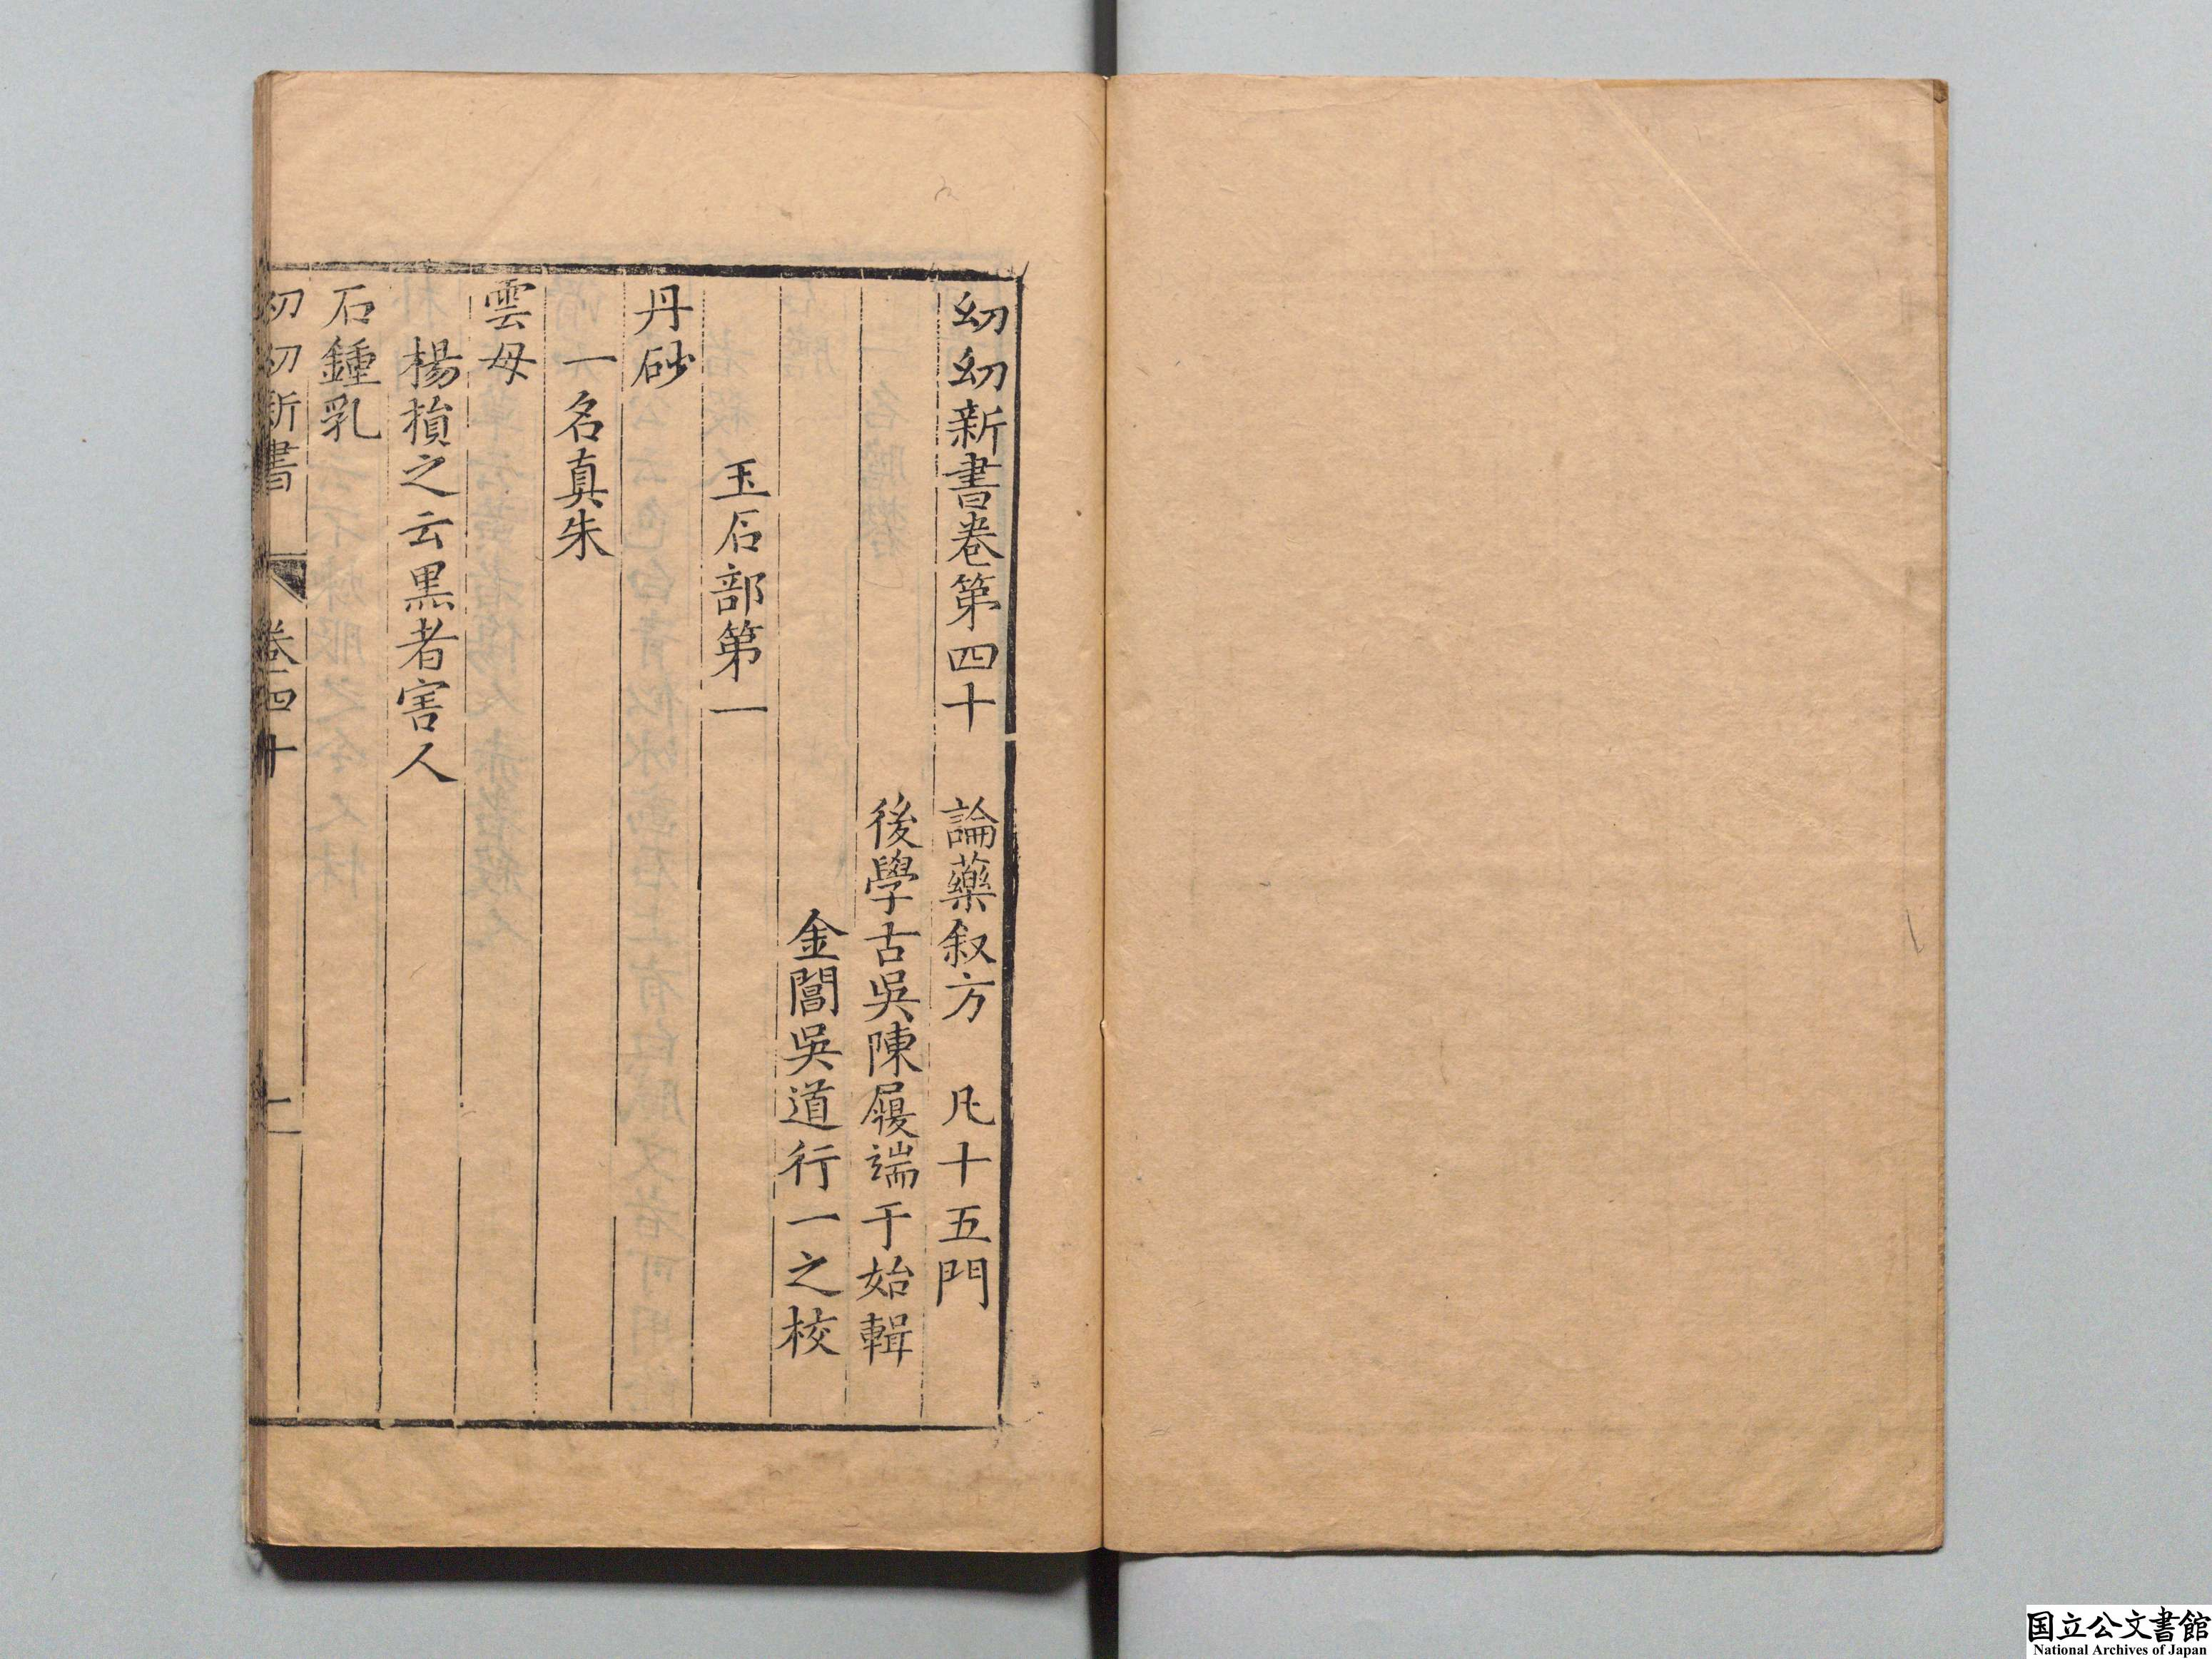 幼幼新書卷第四十　論藥叙方　凡十五門
後學古吳陳履端于始輯
金閶吳道行一之校
玉石部第一
丹砂
一名真朱
雲母
楊損之云黑者害人
石鍾乳
幼幼新書　卷四十
国立公文書館
National Archives of Japan